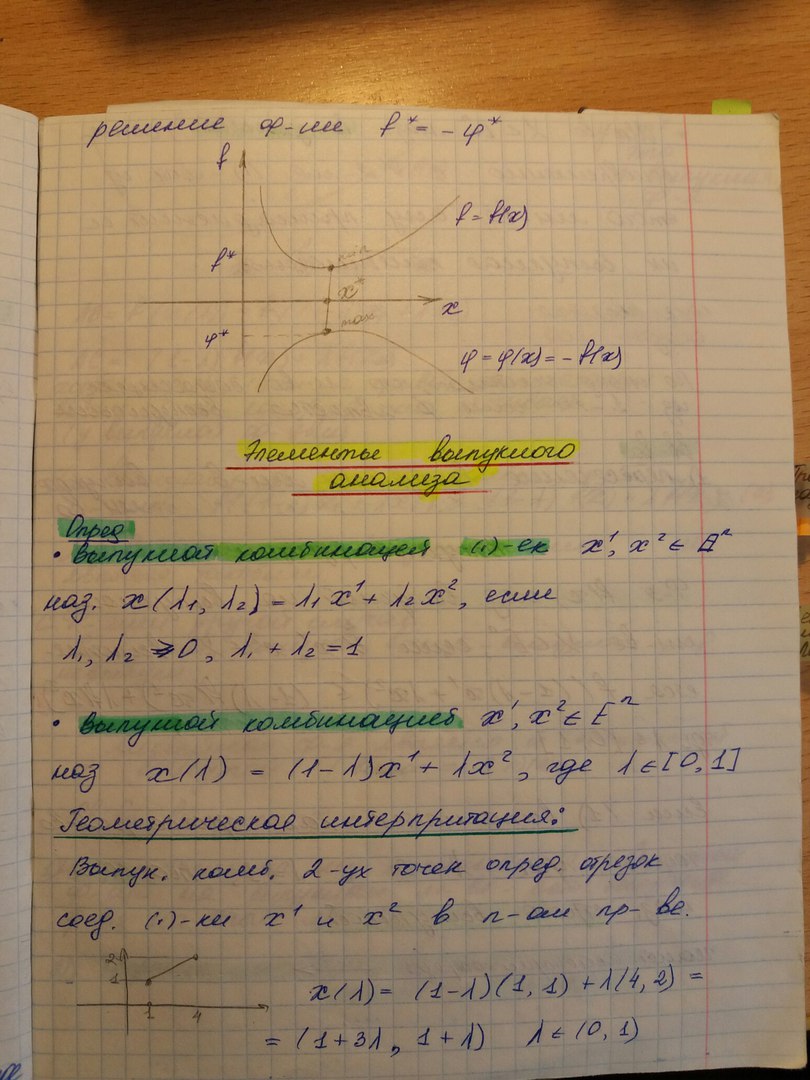 решение ф-ии f* = - φ*
f
f = f(x)
min
f*
x*
x
max
φ*
φ = φ(x) = - f(x)
Элементы выпуклого
анализа
Опред
• выпуклой комбинацией (·)-ек x¹, x² ∈ Eⁿ
наз. x(λ₁, λ₂) = λ₁x¹ + λ₂x², если
λ₁, λ₂ ≥ 0, λ₁ + λ₂ = 1
• выпуклой комбинацией x¹, x² ∈ Eⁿ
наз x(λ) = (1-λ)x¹ + λx², где λ ∈ [0, 1]
Геометрическая интерпритация:
Выпук. комб. 2-ух точек опред. отрезок
соед. (·)-ки x¹ и x² в n-ом пр-ве.
2
1
1 4
x(λ) = (1-λ)(1, 1) + λ(4, 2) =
= (1+3λ, 1+λ) λ ∈ (0, 1)